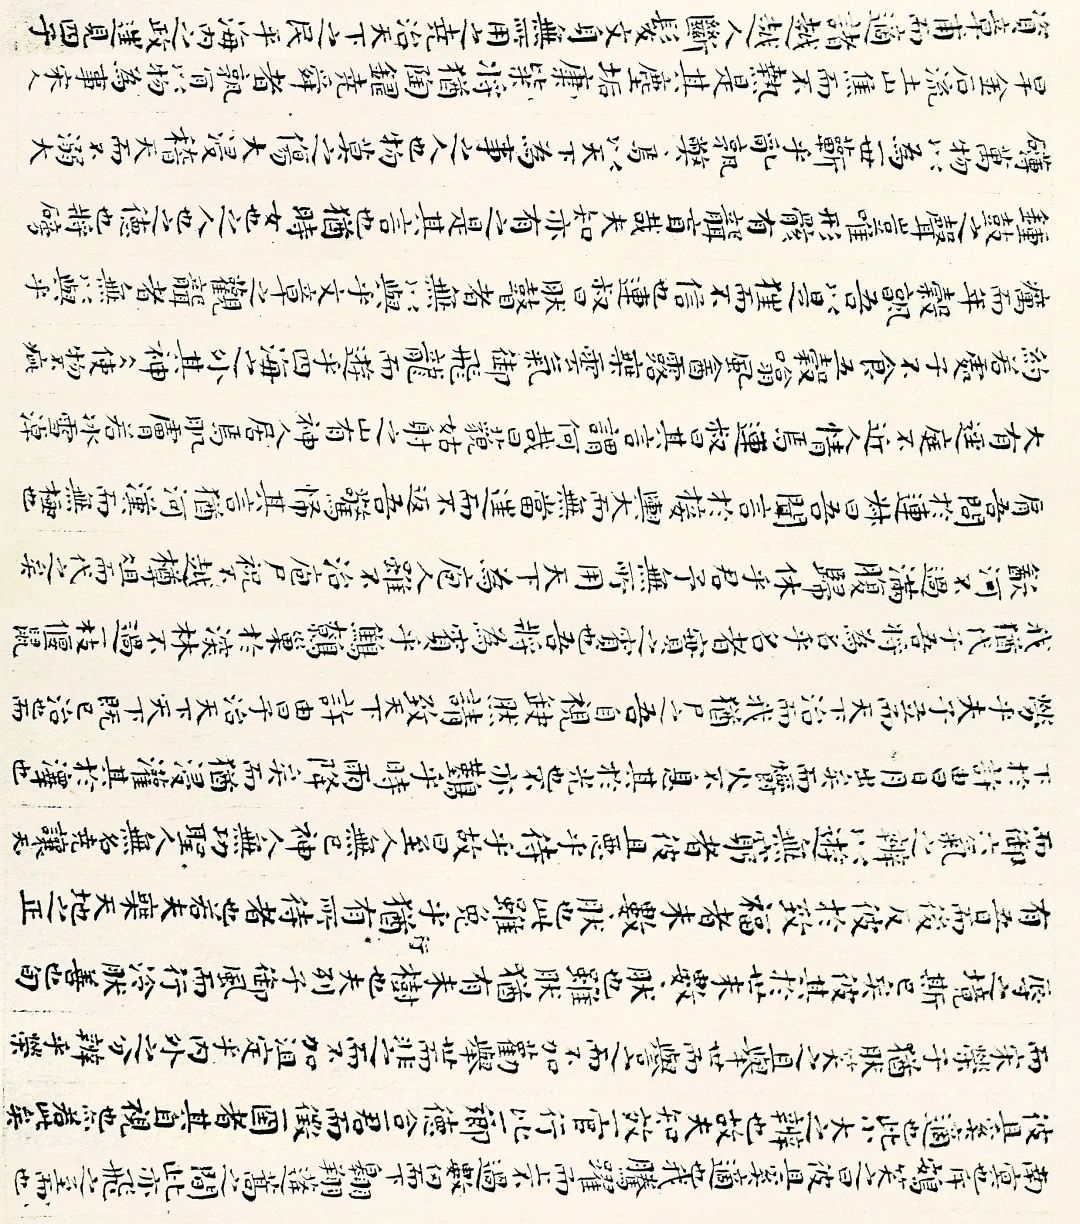 南冥也斥鴳笑之曰彼且奚適也我騰躍而上不過數仞而下翱翔蓬蒿之間此亦飛之至也而
彼且奚適也此小大之辨也故夫知效一官行比一鄉德合一君而徵一國者其自視也亦若此矣
而宋榮子猶然笑之且舉世而譽之而不加勸舉世而非之而不加沮定乎內外之分辨乎榮
辱之境斯已矣彼其於世未數數然也雖然猶有未樹也夫列子御風而行泠然善也旬
有五日而後反彼於致福者未數數然也此雖免乎行猶有所待者也若夫乘天地之正
而御六氣之辨以遊無窮者彼且惡乎待乎故曰至人無己神人無功聖人無名堯讓天
下於許由曰日月出矣而爝火不息其於光也不亦難乎時雨降矣而猶浸灌其於澤也
勞乎夫子立而天下治而我猶尸之吾自視缺然請致天下許由曰子治天下天下既已治也而
我猶代子吾將為名乎名者實之賓也吾將為賓乎鷦鷯巢於深林不過一枝偃鼠
飲河不過滿腹歸休乎君予無所用天下為庖人雖不治庖尸祝不越樽俎而代之矣
肩吾問於連叔曰吾聞言於接輿大而無當往而不返吾驚怖其言猶河漢而無極也
大有逕庭不近人情焉連叔曰其言謂何哉曰藐姑射之山有神人居焉肌膚若冰雪淖
約若處子不食五穀吸風飲露乘雲氣御飛龍而遊乎四海之外其神凝使物不疵
癘而年穀熟吾以是狂而不信也連叔曰然瞽者無以與乎文章之觀聾者無以與乎
鐘鼓之聲豈唯形骸有聾盲哉夫知亦有之是其言也猶時女也之人也之德也將旁
礴萬物以為一世蘄乎亂孰弊弊焉以天下為事之人也物莫之傷大浸稽天而不溺大
旱金石流土山焦而不熱是其塵垢秕糠將猶陶鑄堯舜者孰肯以物為事宋人
資章甫而適諸越越人斷髮文身無所用之堯治天下之民平海內之政往見四子